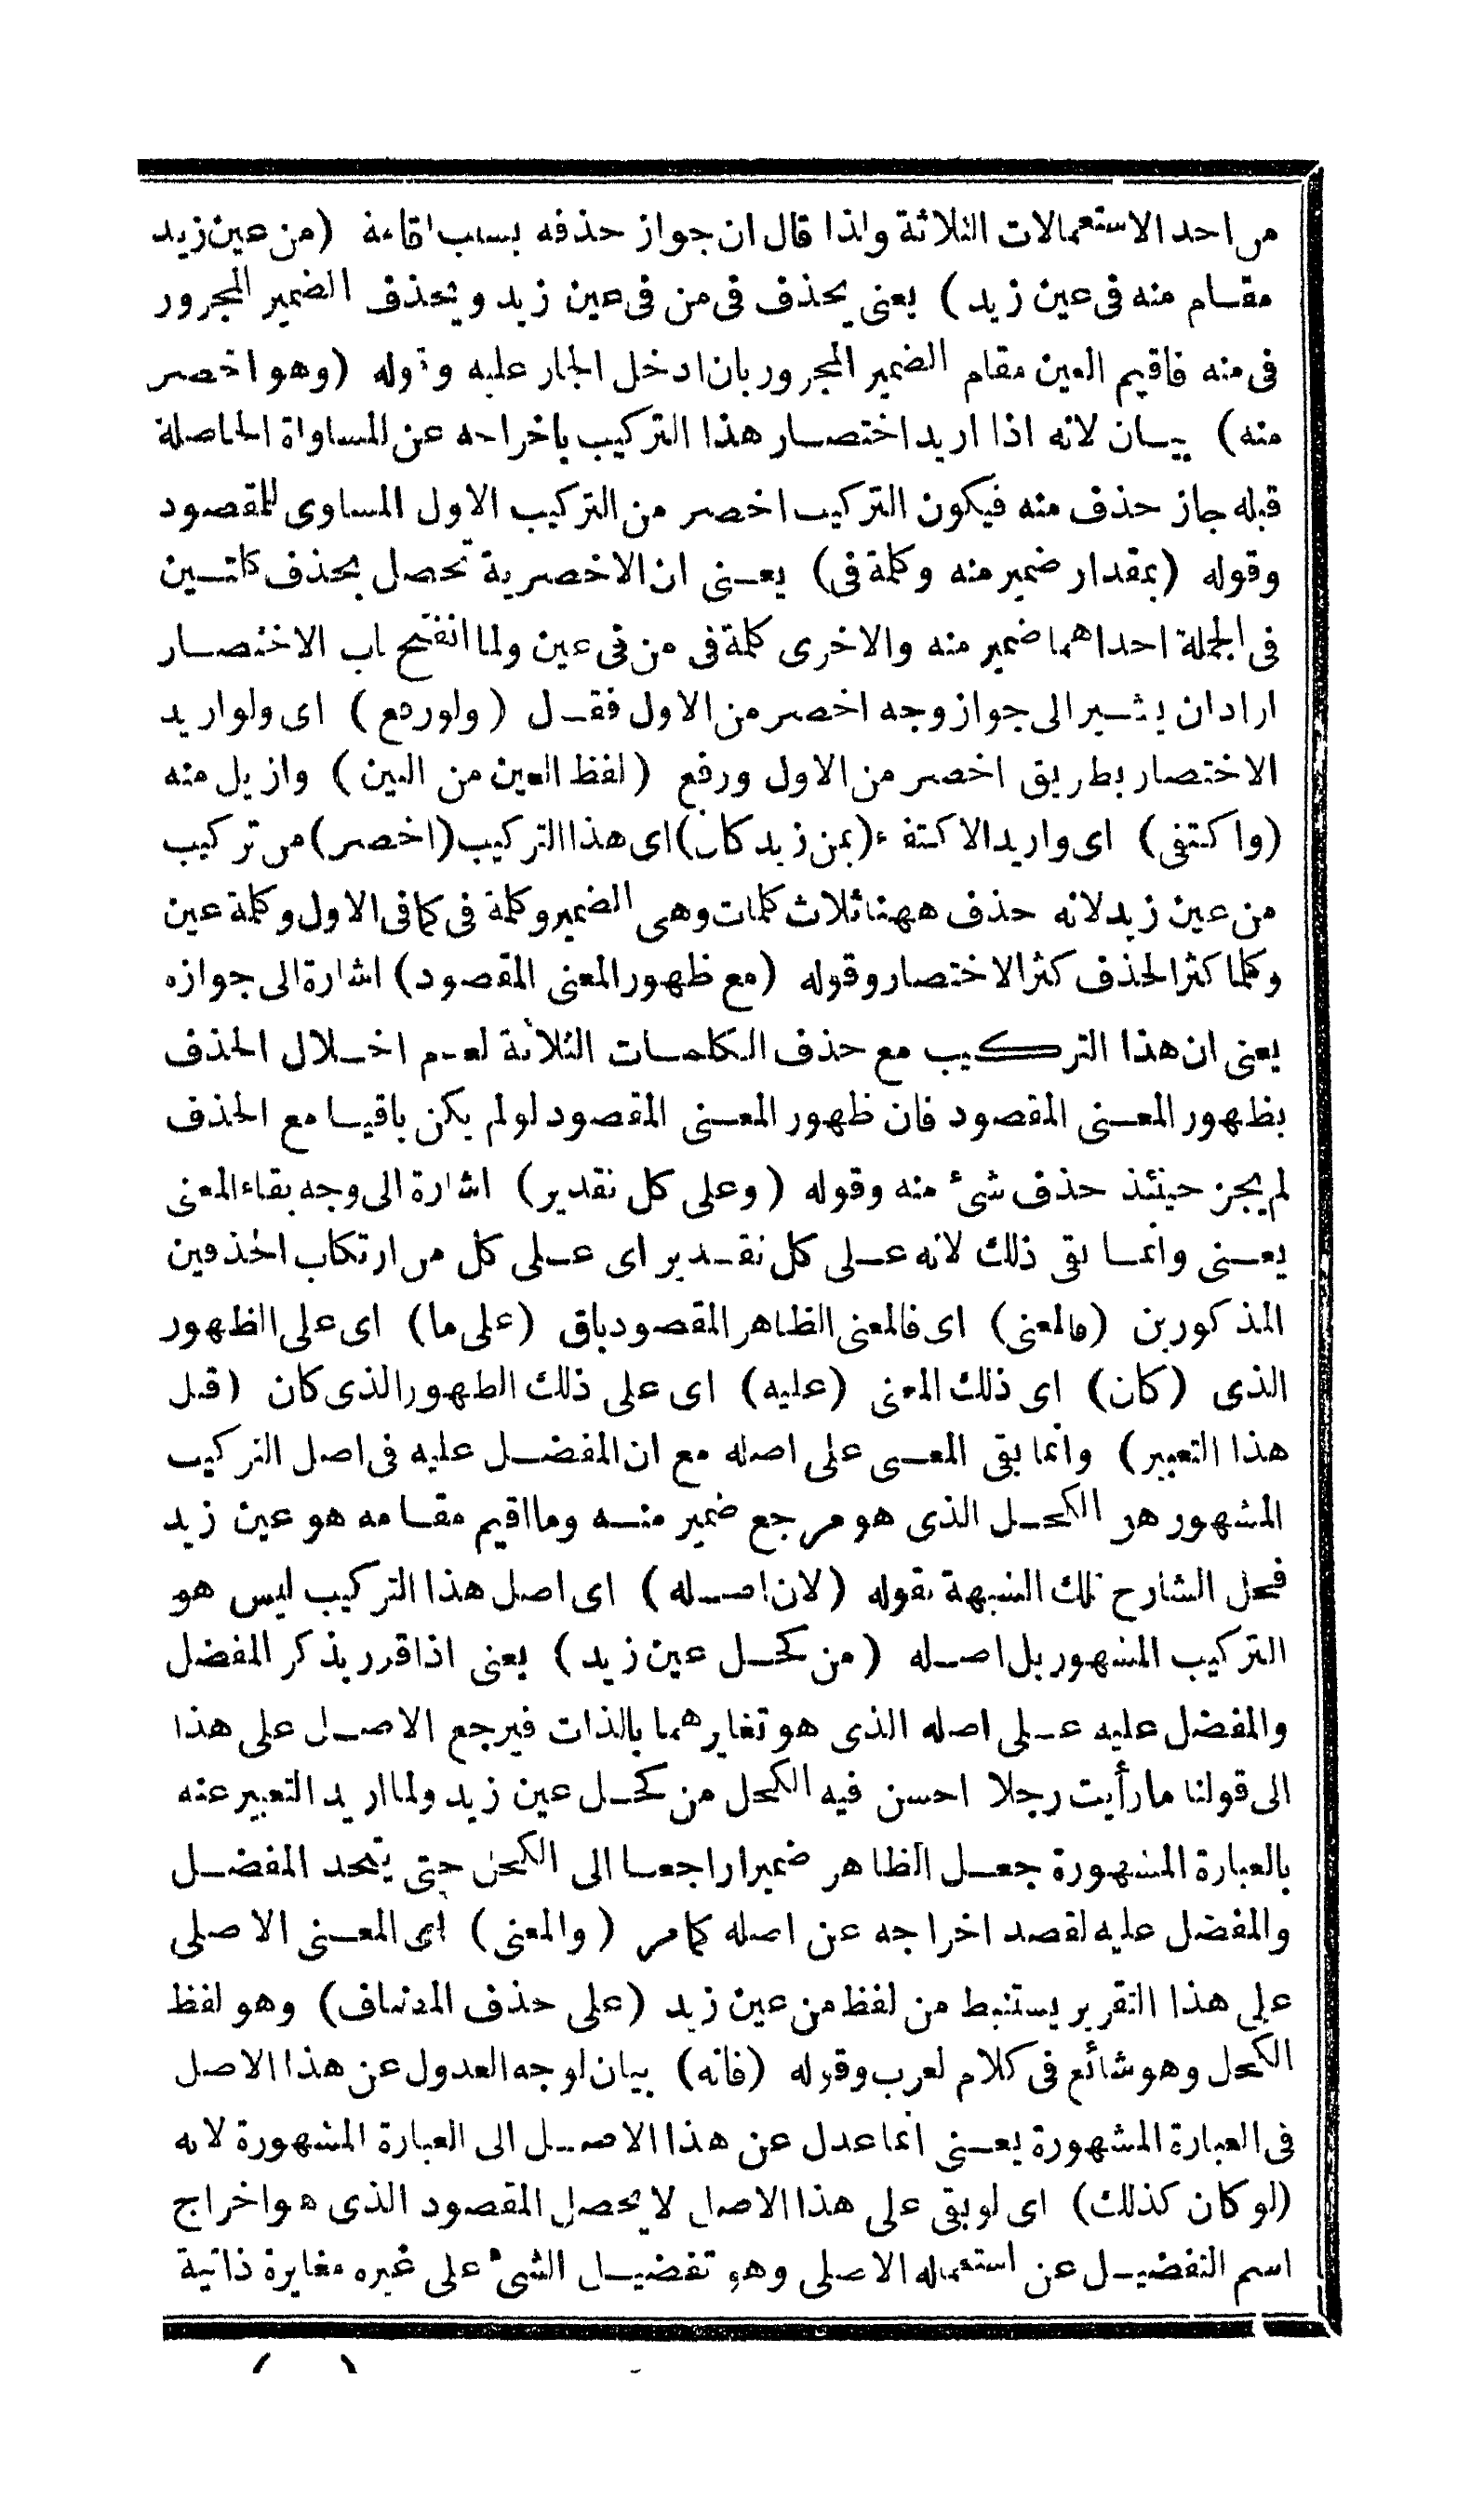 من احد الاستعمالات الثلاثة ولذا قال ان جواز حذفه بسبب اقامة (من عين زيد
مقام منه فى عين زيد) يعنى يحذف فى من فى عين زيد ويحذف الضمير المجرور
فى منه فاقيم العين مقام الضمير المجرور بان ادخل الجار عليه وقوله (وهو اخصر
منه) بيان لانه اذا اريد اختصار هذا التركيب باخراجه عن المساواة الحاصلة
قبله جاز حذف منه فيكون التركيب اخصر من التركيب الاول المساوى للمقصود
وقوله (بمقدار ضمير منه وكلمة فى) يعنى ان الاخصرية تحصل بحذف كلمتين
فى الجملة احداهما ضمير منه والاخرى كلمة فى من فى عين ولما انفتح باب الاختصار
اراد ان يشير الى جواز وجه اخصر من الاول فقال (ولو رفع) اى ولو اريد
الاختصار بطريق اخصر من الاول ورفع (لفظ العين من البين) وازيل منه
(واكتفى) اى واريد الاكتفاء (بمن زيد كان) اى هذا التركيب (اخصر) من تركيب
من عين زيد لانه حذف ههنا ثلاث كلمات وهى الضمير وكلمة فى كما فى الاول وكلمة عين
وكلما كثر الحذف كثر الاختصار وقوله (مع ظهور المعنى المقصود) اشارة الى جوازه
يعنى ان هذا التركيب مع حذف الكلمات الثلاثة لعدم اخلال الحذف
بظهور المعنى المقصود فان ظهور المعنى المقصود لو لم يكن باقيا مع الحذف
لم يجز حينئذ حذف شئ منه وقوله (وعلى كل تقدير) اشارة الى وجه بقاء المعنى
يعنى وانما بقى ذلك لانه على كل تقدير اى على كل من ارتكاب الحذفين
المذكورين (فالمعنى) اى فالمعنى الظاهر المقصود باق (على ما) اى على الظهور
الذى (كان) اى ذلك المعنى (عليه) اى على ذلك الظهور الذى كان (قبل
هذا التعبير) وانما بقى المعنى على اصله مع ان المفضل عليه فى اصل التركيب
المشهور هو الكحل الذى هو مرجع ضمير منه وما اقيم مقامه هو عين زيد
فحل الشارح تلك الشبهة بقوله (لان اصله) اى اصل هذا التركيب ليس هو
التركيب المشهور بل اصله (من كحل عين زيد) يعنى اذا قرر يذكر المفضل
والمفضل عليه على اصله الذى هو تغايرهما بالذات فيرجع الاصل على هذا
الى قولنا ما رأيت رجلا احسن فيه الكحل من كحل عين زيد ولما اريد التعبير عنه
بالعبارة المشهورة جعل الظاهر ضميرا راجعا الى الكحل حتى يتحد المفضل
والمفضل عليه لقصد اخراجه عن اصله كما مر (والمعنى) اى المعنى الاصلى
على هذا التقرير يستنبط من لفظ من عين زيد (على حذف المضاف) وهو لفظ
الكحل وهو شائع فى كلام لعرب وقوله (فانه) بيان لوجه العدول عن هذا الاصل
فى العبارة المشهورة يعنى انما عدل عن هذا الاصل الى العبارة المشهورة لانه
(لو كان كذلك) اى لو بقى على هذا الاصل لا يحصل المقصود الذى هو اخراج
اسم التفضيل عن استعماله الاصلى وهو تفضيل الشئ على غيره مغايرة ذاتية